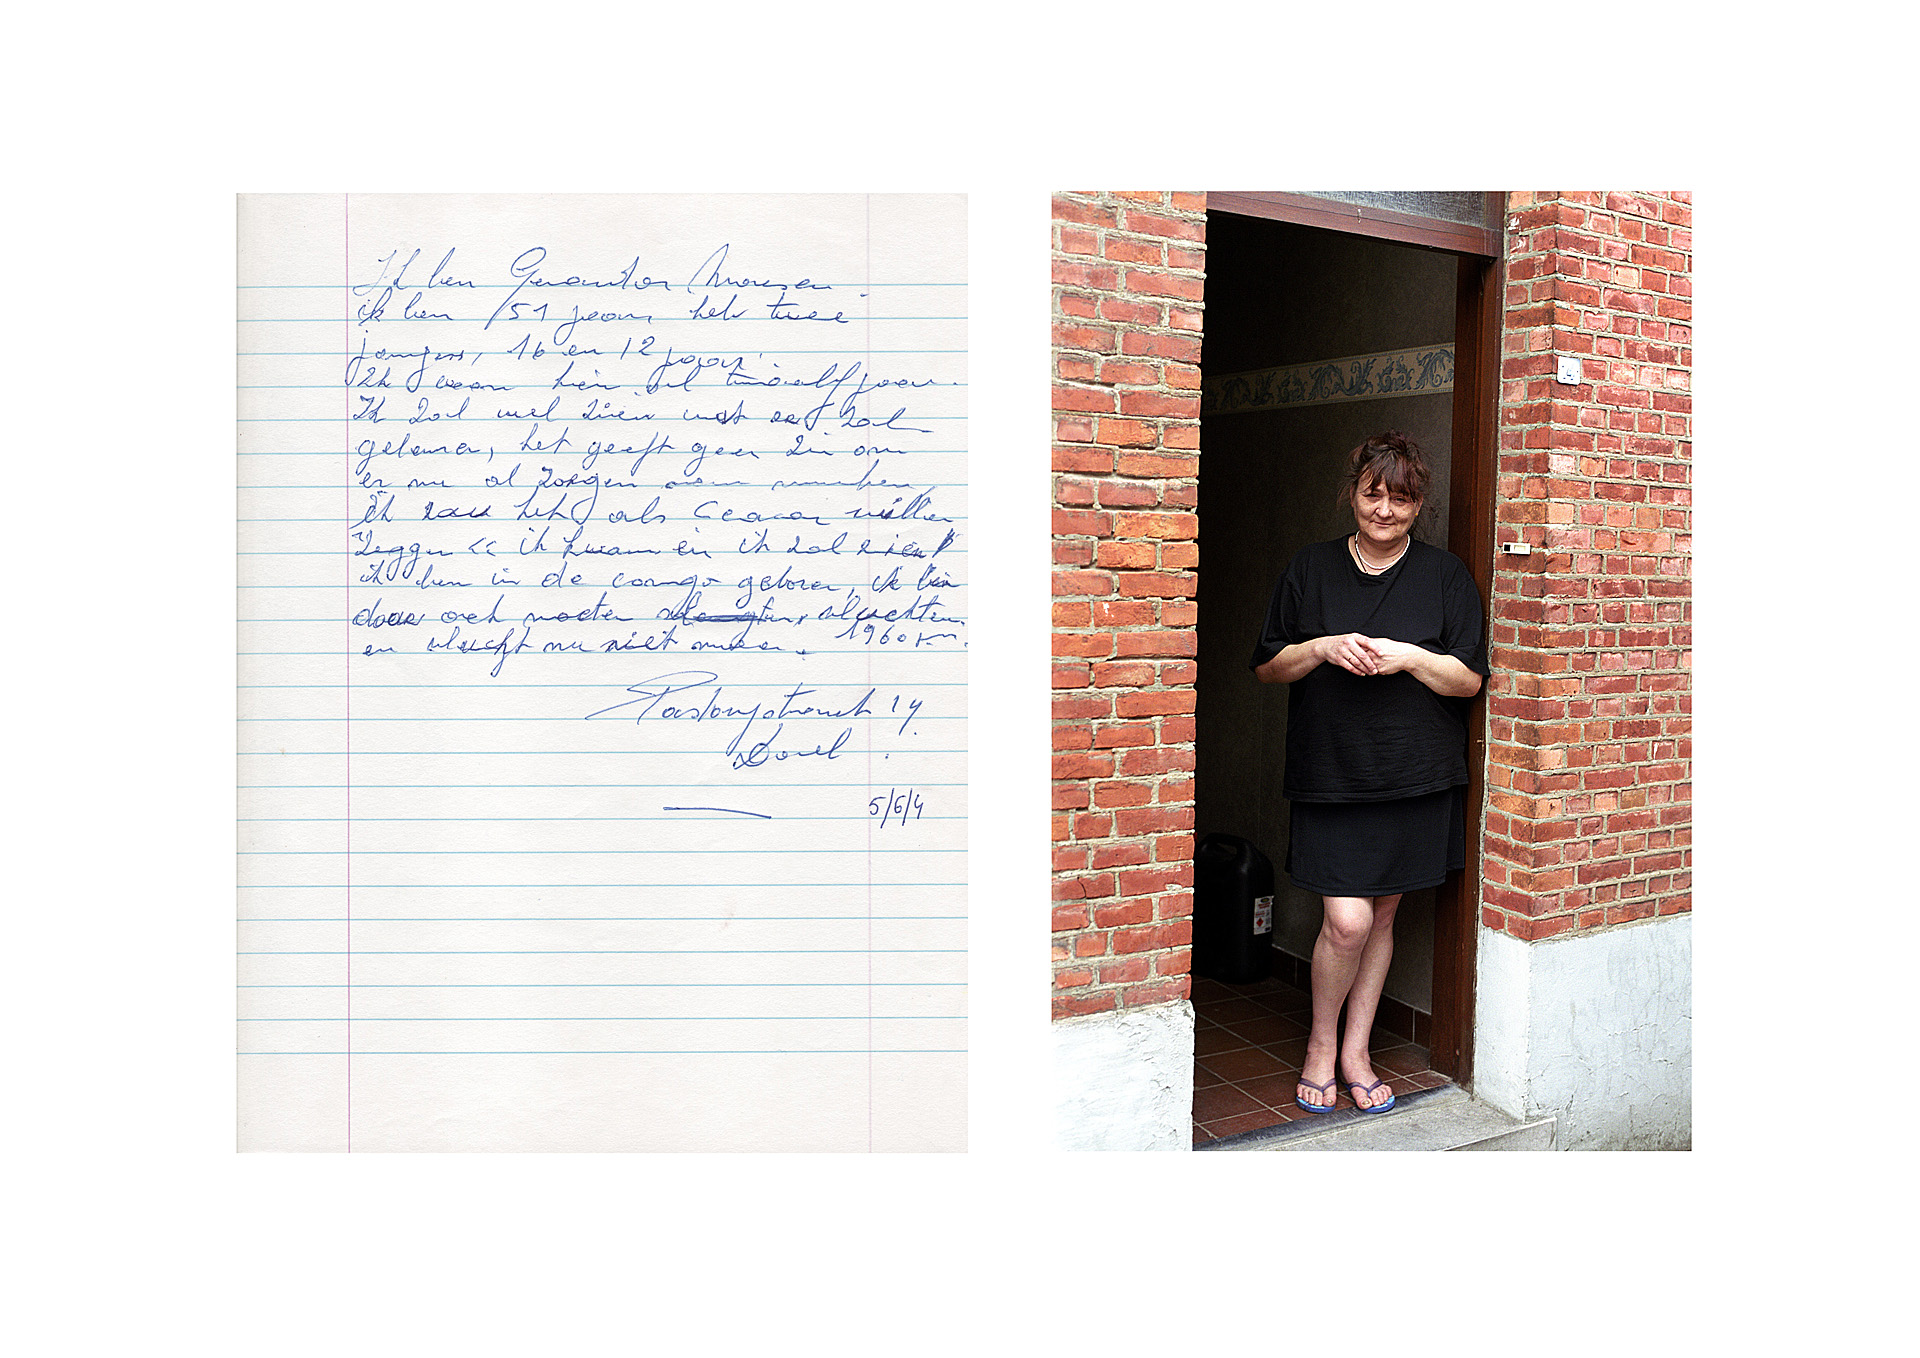 Ik ben
ik ben 51 jaar, heb twee
jongens, 16 en 12 jaar.
Ik woon hier al twaalf jaar.
Ik zal wel zien wat er zal
gebeuren, het geeft geen zin om
er nu al zorgen om maken
Ik zou het als Ceasar willen
zeggen << ik kwam en ik zal zien
ik ben in de congo geboren, ik ben
daar ook moeten vluchten
1960
en vlucht nu niet meer.
Pastorijstraat 14
Doel.
5/6/4